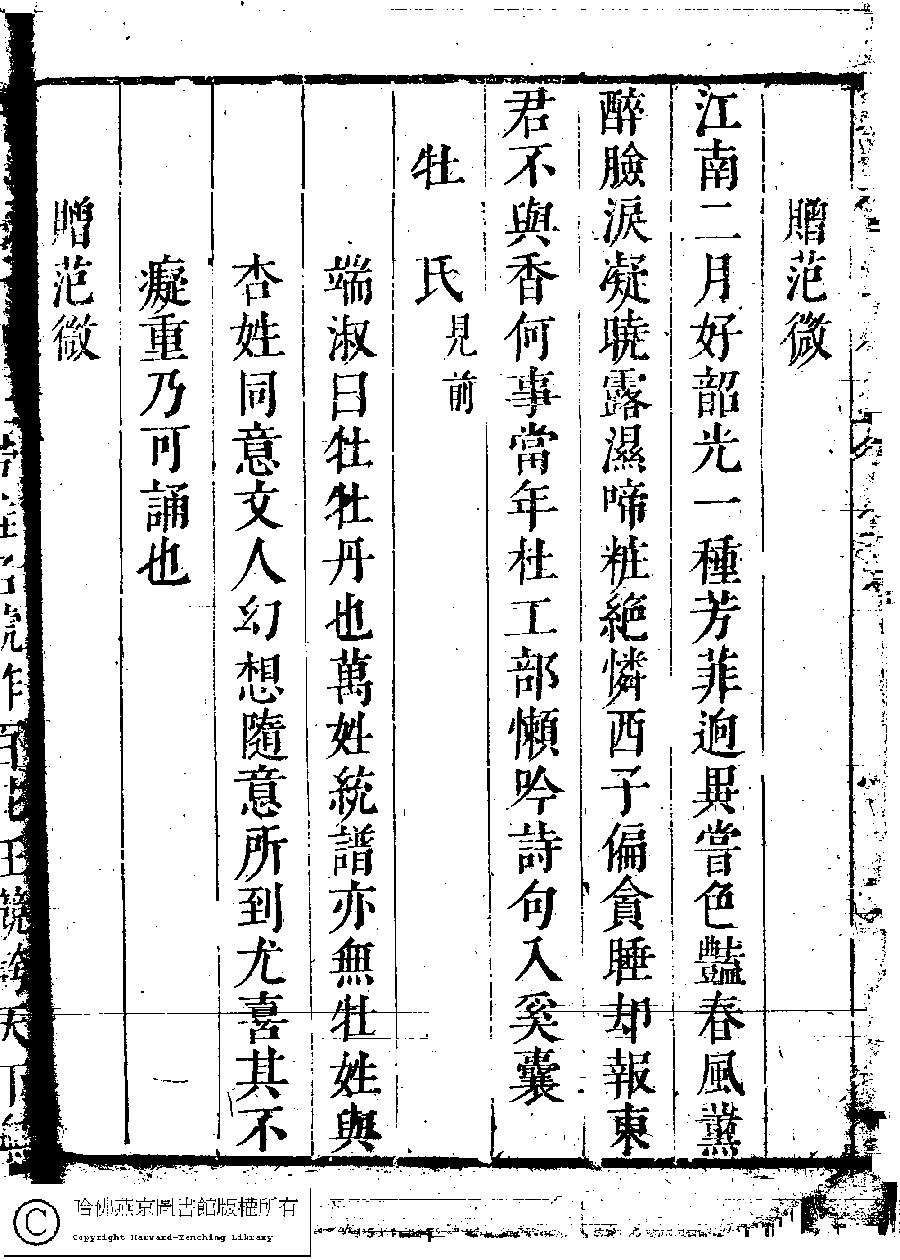 贈范微
江南二月好韶光一種芳菲逈異嘗色豔春風薰
醉臉淚凝曉露濕啼粧絶憐西子偏貪睡却報東
君不與香何事當年杜工部懶吟詩句入奚囊
牡氏見前
端淑曰牡牡丹也萬姓統譜亦無牡姓與
杏姓同意文人幻想隨意所到尤喜其不
癡重乃可誦也
贈范微
哈佛燕京圖書館版權所有
Copyright Harvard-Yenching Library